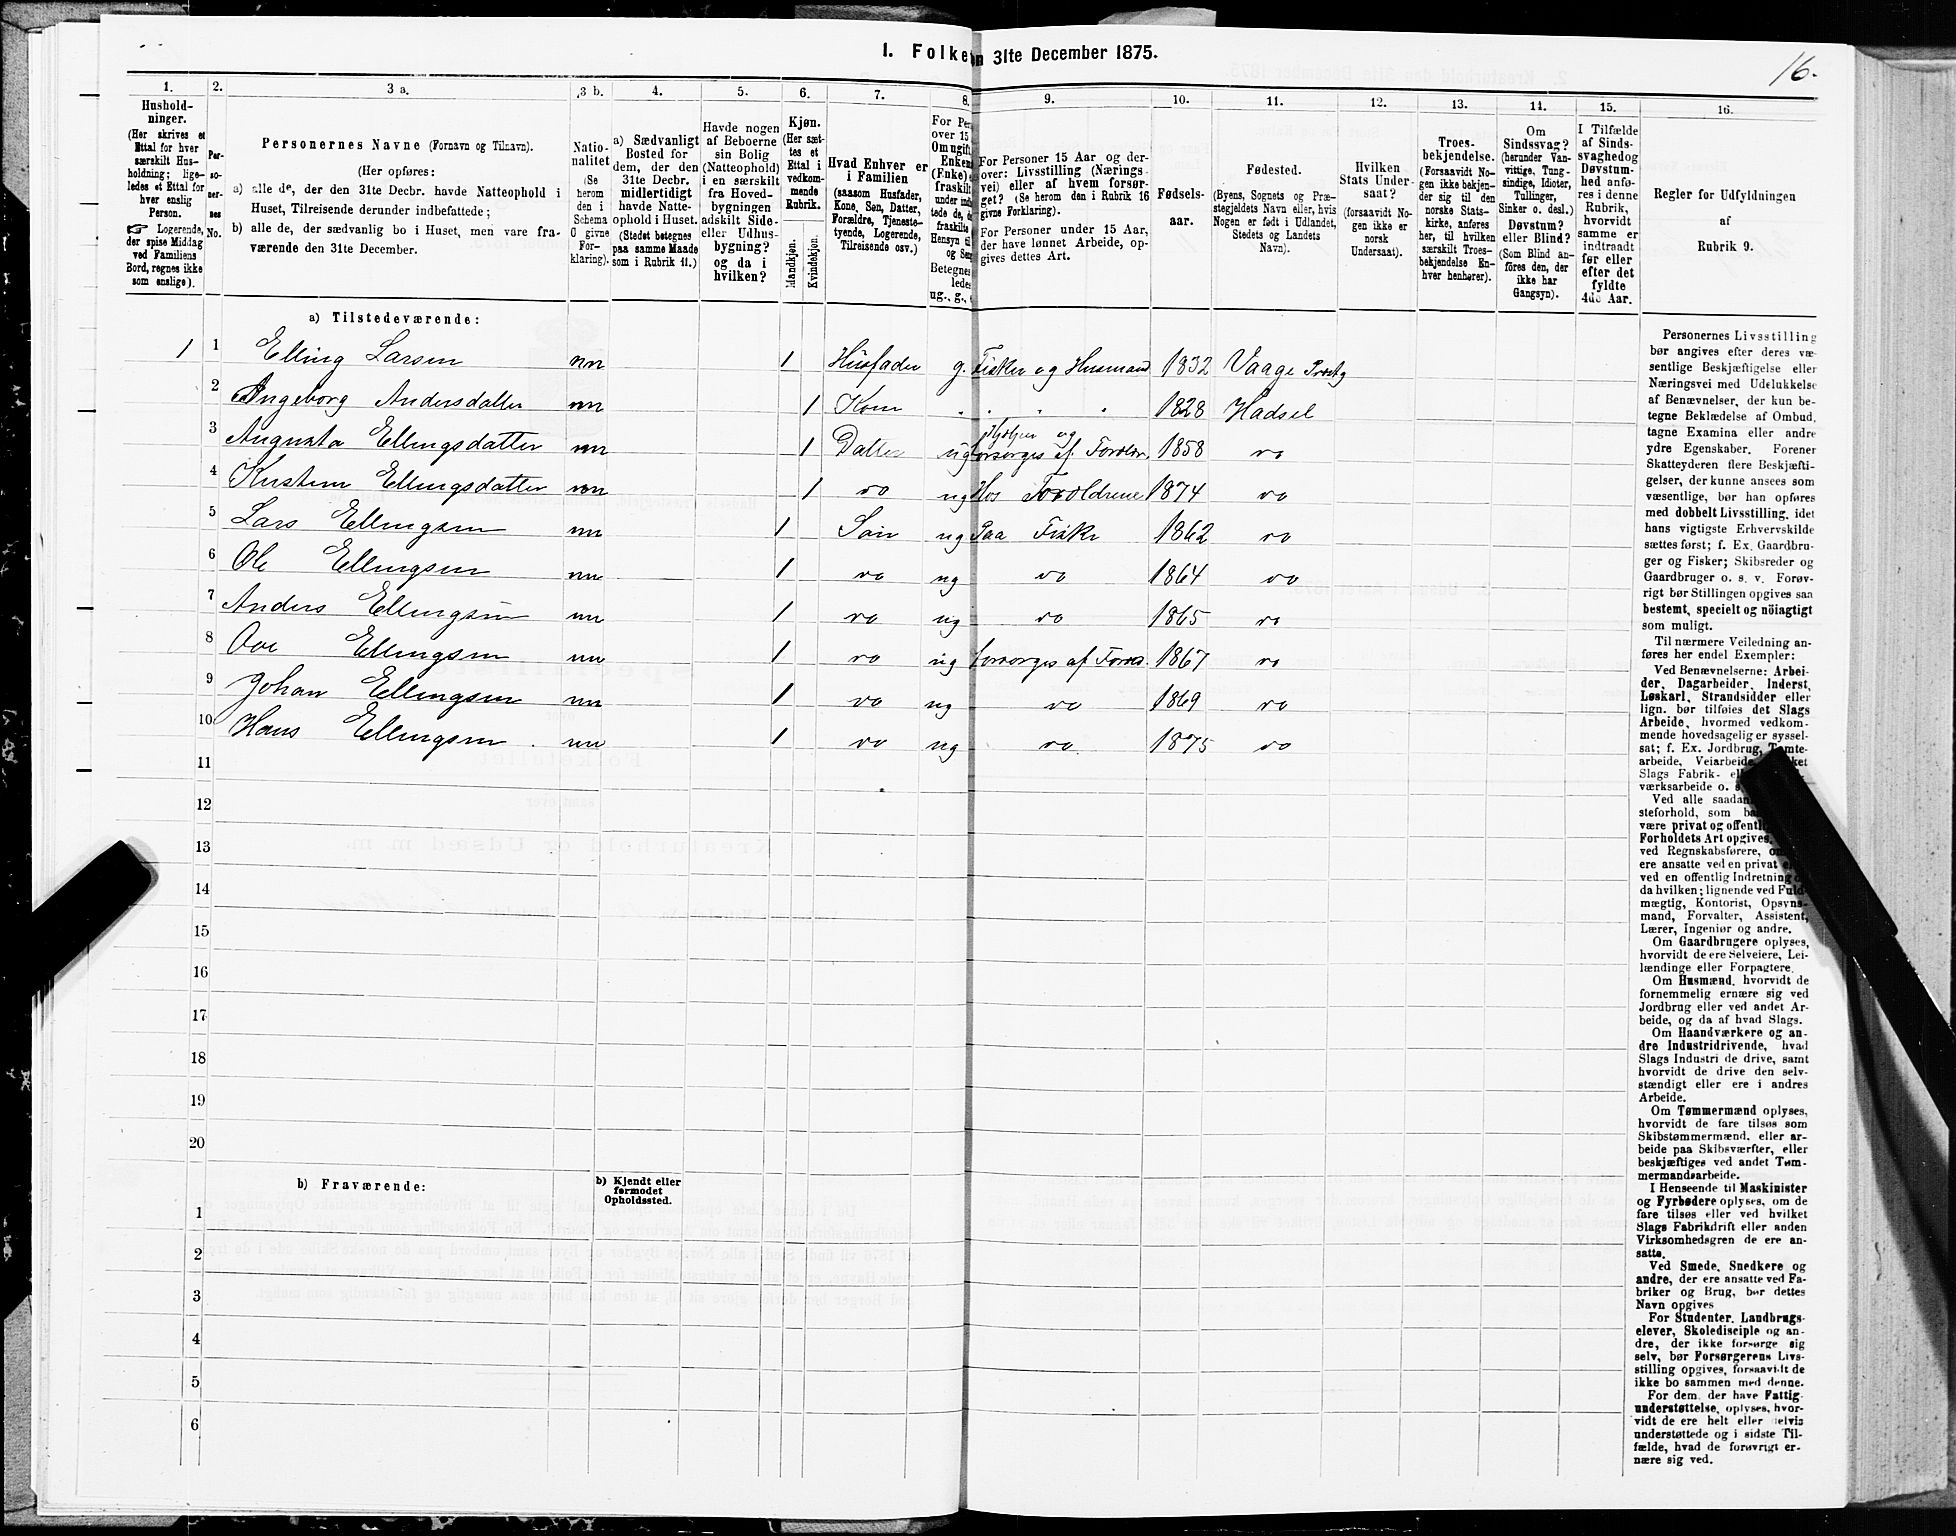 I. Folke n 31te December 1875.
16.
1. 2. 3 a. 3 b. 4. 5. 6. 7. 8. 9. 10. 11. 12. 13. 14. 15. 16.
Hushold-
ninger.
(Her skrives et
Ettal for hver
særskilt Hus-
holdning; lige-
ledes et Ettal for
hver enslig
Person.
☞ Logerende,
der spise Middag
ved Familiens
Bord, regnes ikke
som enslige).
Per-
so-
ner-
nes
No.
Personernes Navne (Fornavn og Tilnavn).
(Her opføres:
a) alle de, der den 31te Decbr. havde Natteophold i
Huset, Tilreisende derunder indbefattede;
b) alle de, der sædvanlig bo i Huset, men vare fra-
værende den 31te December.
Natio-
nalitet
(Se
herom
den i
Schema
C givne
For-
klaring).
a) Sædvanligt
Bosted for
dem, der den
31te Decbr.
midlertidigt
havde Natte-
ophold i Huset.
(Stedet betegnes
paa samme Maade
som i Rubrik 11.)
Havde nogen
af Beboerne
sin Bolig
(Natteophold)
i en særskilt
fra Hoved-
bygningen
adskilt Side-
eller Udhus-
bygning?
og da i
hvilken?
Kjøn.
(Her sæt-
tes et
Ettal i
vedkom-
mende
Rubrik.
Mandkjøn.
Kvindekjøn.
Hvad Enhver er
i Familien
(saasom Husfader,
Kone, Søn, Datter,
Forældre, Tjeneste-
tyende, Logerende,
Tilreisende osv.)
For Per
over 15
Om ugift
Enkem
(Enke)
fraskilt
under ind
tede de,
fraskilte
Hensyn til
og Sen
Betegnes
ledes
ug., g.,
For Personer 15 Aar og der-
over: Livsstilling (Nærings-
vei) eller af hvem forsør-
get? (Se herom den i Rubrik 16
givne Forklaring).
For Personer under 15 Aar,
der have lønnet Arbeide, op-
gives dettes Art.
Fødsels-
aar.
Fødested.
(Byens, Sognets og Præ-
stegjeldets Navn eller, hvis
Nogen er født i Udlandet,
Stedets og Landets
Navn).
Hvilken
Stats Under-
saat?
(forsaavidt No-
gen ikke er
norsk
Undersaat).
Troes-
bekjendelse.
(Forsaavidt No-
gen ikke bekjen-
der sig til den
norske Stats-
kirke, anføres
her, til hvilken
særskilt Troes-
bekjendelse En-
hver henhører).
Om
Sindssvag?
(herunder Van-
vittige, Tung-
sindige, Idioter,
Tullinger,
Sinker o. desl.)
Døvstum?
eller Blind?
(Som Blind an-
føres den, der
ikke har
Gangsyn).
I Tilfælde
af Sinds-
svaghedog
Døvstum-
hed anfø-
res i denne
Rubrik,
hvorvidt
samme er
indtraadt
før eller
efter det
fyldte
4de Aar.
Regler for Udfyldningen
af
Rubrik 9.
a) Tilstedeværende:
1 1 Elling Larsen nn 1 Husfader g. Fisker og Husmand 1832 Vaage Prstg
2 Ingeborg Andersdatter nn 1 Kone 1828 Hadsel
3 Augusta Ellingsdatter nn 1 Datter ug Hjelper og forsørges af Forældr. 1858 do
4 Kristine Ellingsdatter nn 1 do ug Hos Forældrene 1874 do
5 Lars Ellingsen nn 1 Søn ug Paa Fiske 1862 do
6 Ole Ellingsen nn 1 do ug do 1864 do
7 Anders Ellingsen nn 1 do ug do 1865 do
8 Ove Ellingsen nn 1 do ug forsørges af Foræ. 1867 do
9 Johan Ellingsen nn 1 do ug do 1869 do
10 Hans Ellingsen nn 1 do ug do 1875 do
11
12
13
14
15
16
17
18
19
20
b) Fraværende:
b) Kjendt eller
formodet
Opholdssted.
1
2
3
4
5
6
Personernes Livsstilling
bør angives efter deres væ-
sentlige Beskjæftigelse eller
Næringsvei med Udelukkelse
af Benævnelser, der kun be-
tegne Beklædelse af Ombud,
tagne Examina eller andre
ydre Egenskaber. Forener
Skatteyderen flere Beskjæfti-
gelser, der kunne ansees som
væsentlige, bør han opføres
med dobbelt Livsstilling, idet
hans vigtigste Erhvervskilde
sættes først; f. Ex. Gaardbru-
ger og Fisker; Skibsreder og
Gaardbruger o. s. v. Forøv-
rigt bør Stillingen opgives saa
bestemt, specielt og nöiagtigt
som muligt.
Til nærmere Veiledning an-
føres her endel Exempler:
Ved Benævnelserne: Arbei-
der, Dagarbeider, Inderst,
Løskarl, Strandsidder eller
lign. bør tilføies det Slags
Arbeide, hvormed vedkom-
mende hovedsagelig er syssel-
sat; f. Ex. Jordbrug, Tømte-
arbeide, Veiarbeide, ket
Slags Fabrik- el
værksarbeide o. s
Ved alle saadan
steforhold, som b
være privat og offentl
Forholdets Art opgives,
ved Regnskabsførere, o
ere ansatte ved en privat e
ved en offentlig Indretning
da hvilken; lignende ved Fuld-
mægtig, Kontorist, Opsyns-
mand, Forvalter, Assistent,
Lærer, Ingeniør og andre.
Om Gaardbrugere oplyses,
hvorvidt de ere Selveiere, Lei-
lændinge eller Forpagtere.
Om Husmænd, hvorvidt de
fornemmelig ernære sig ved
Jordbrug eller ved andet Ar-
beide, og da af hvad Slags.
Om Haandværkere og an-
dre Industridrivende, hvad
Slags Industri de drive, samt
hvorvidt de drive den selv-
stændigt eller ere i andres
Arbeide.
Om Tømmermænd oplyses,
hvorvidt de fare tilsøs som
Skibstømmermænd, eller ar-
beide paa Skibsværfter, eller
beskjæftiges ved andet Tøm-
mermandsarbeide.
I Henseende til Maskinister
og Fyrbødere oplyses, om de
fare tilsøs eller ved hvilket
Slags Fabrikdrift eller anden
Virksomhedsgren de ere an-
satte.
Ved Smede, Snedkere og
andre, der ere ansatte ved Fa-
briker og Brug, bør dettes
Navn opgives
For Studenter, Landbrugs-
elever, Skoledisciple og an-
dre, der ikke forsørge sig
selv, bør Forsørgerens Livs-
stilling opgives, forsaavidt de
ikke bo sammen med denne.
For dem, der have Fattig-
understøttelse, oplyses, hvor-
vidt de ere helt eller delvis
understøttede og i sidste Til-
fælde, hvad de forøvrigt er-
nære sig ved.